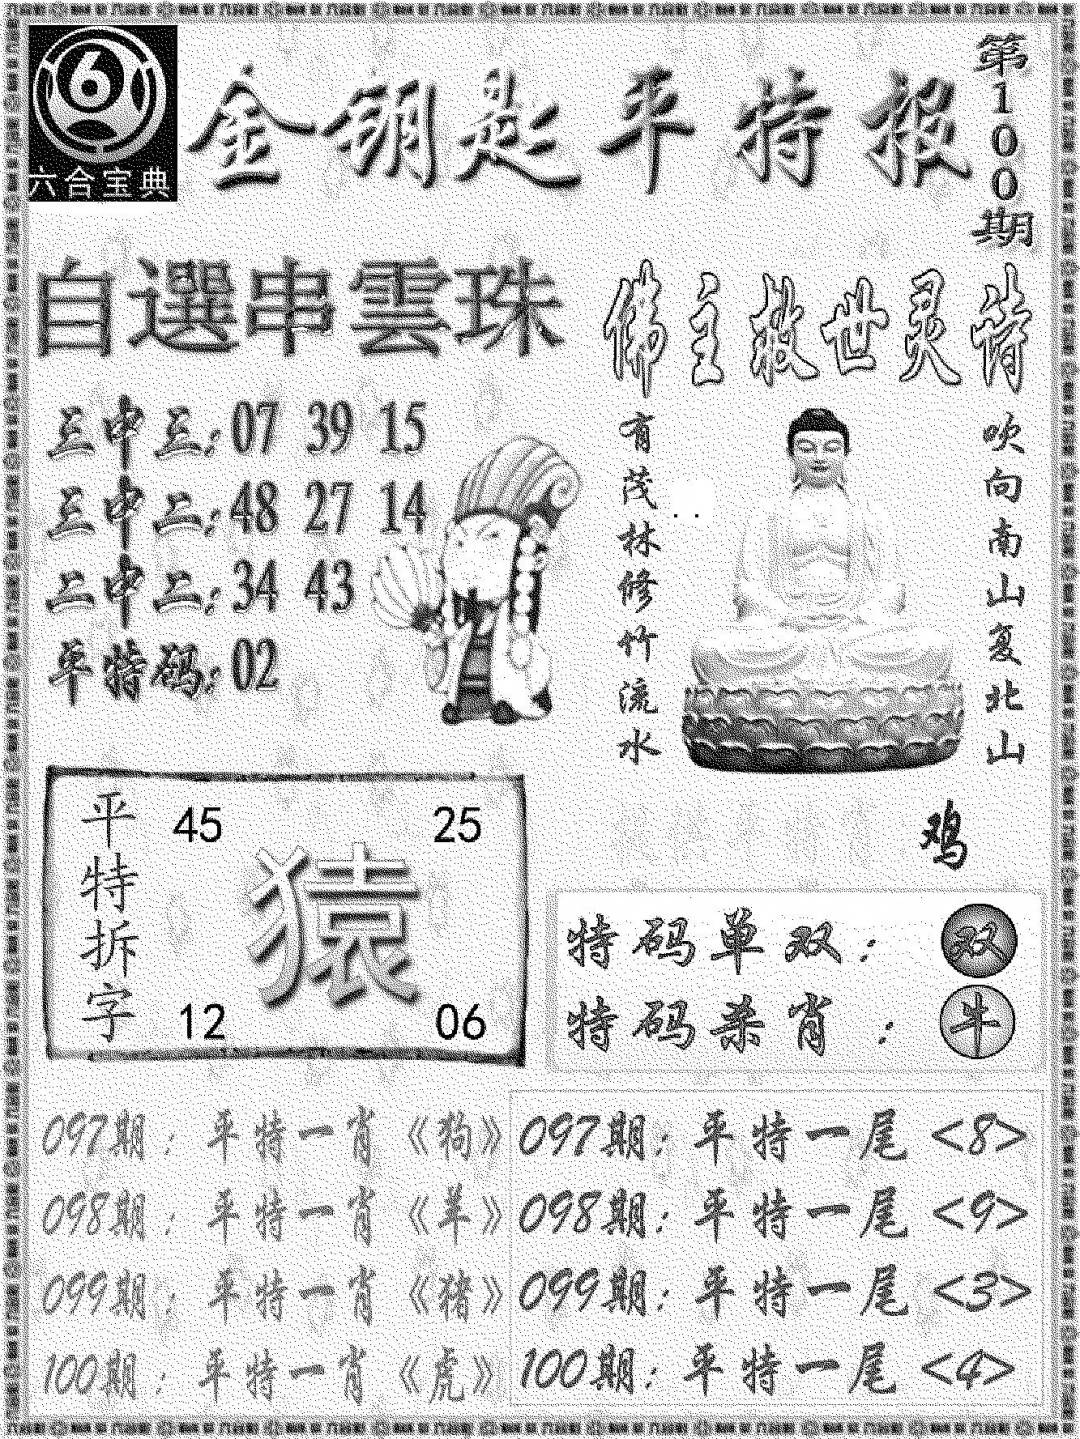 六合宝典
金钥匙平特报
第100期
自選串雲珠
三中三:07 39 15
三中二:48 27 14
二中二:34 43
平特码:02
佛主救世灵诗
吹向南山复北山
有茂林修竹流水
鸡
平特拆字
45 25
猿
12 06
特码单双: 双
特码杀肖: 牛
097期:平特一肖《狗》
098期:平特一肖《羊》
099期:平特一肖《猪》
100期:平特一肖《虎》
097期:平特一尾<8>
098期:平特一尾<9>
099期:平特一尾<3>
100期:平特一尾<4>